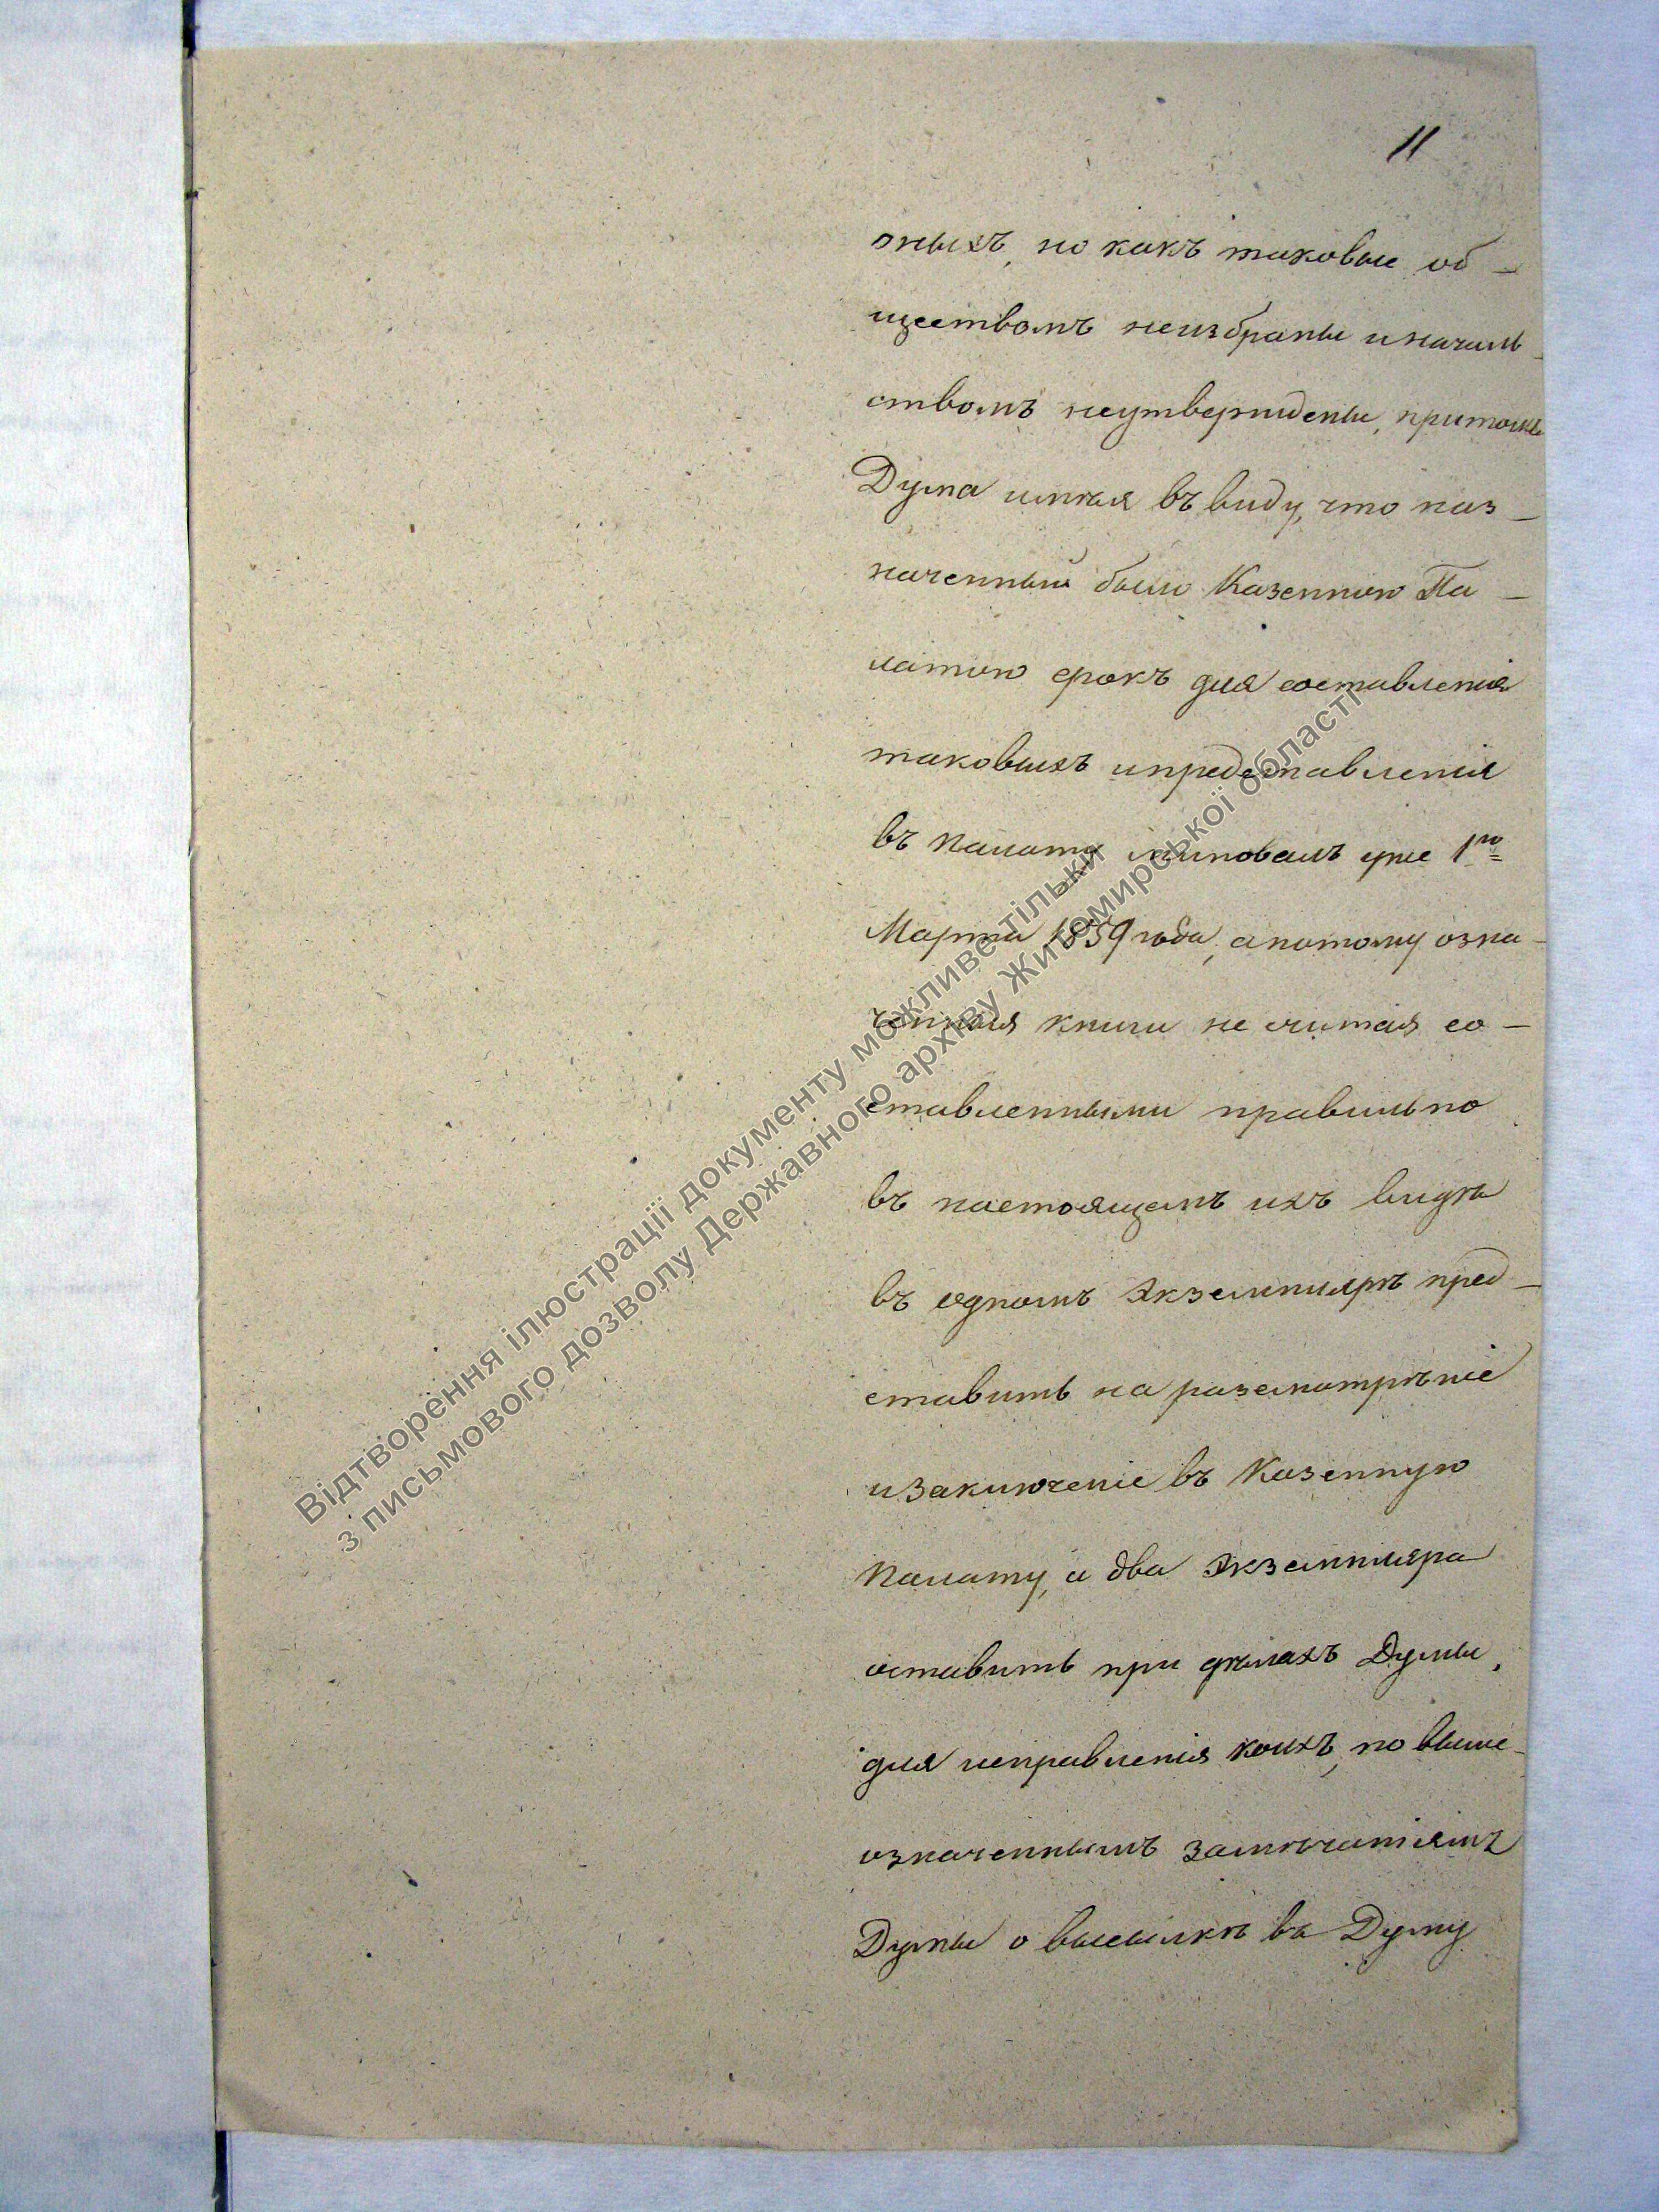 11
оныхъ, но какъ таковые об-
ществомъ неизбраны иначаль-
ствомъ неутверждены, притомъ
Дума имѣя въ виду, что наз-
наченный было Казенною Па-
латою срокъ для составленія
таковыхъ ипредставленія
въ палату миновалъ уже 1го
Марта 1859 года, апотому озна-
ченныя книги не считая со-
ставленными правильно
въ настоящемъ ихъ видѣ
въ одномъ экземплярѣ пред-
ставить на разсмотрѣніе
изаключеніе въ Казенную
палату, а два экземпляра
оставить при дѣлахъ Думы,
для исправленія коихъ, по выше-
означеннымъ замѣчаніямъ
Думы о высылкѣ въ Думу
Відтворення ілюстрації документу можливе тільки
з письмового дозволу Державного архіву Житомирської області